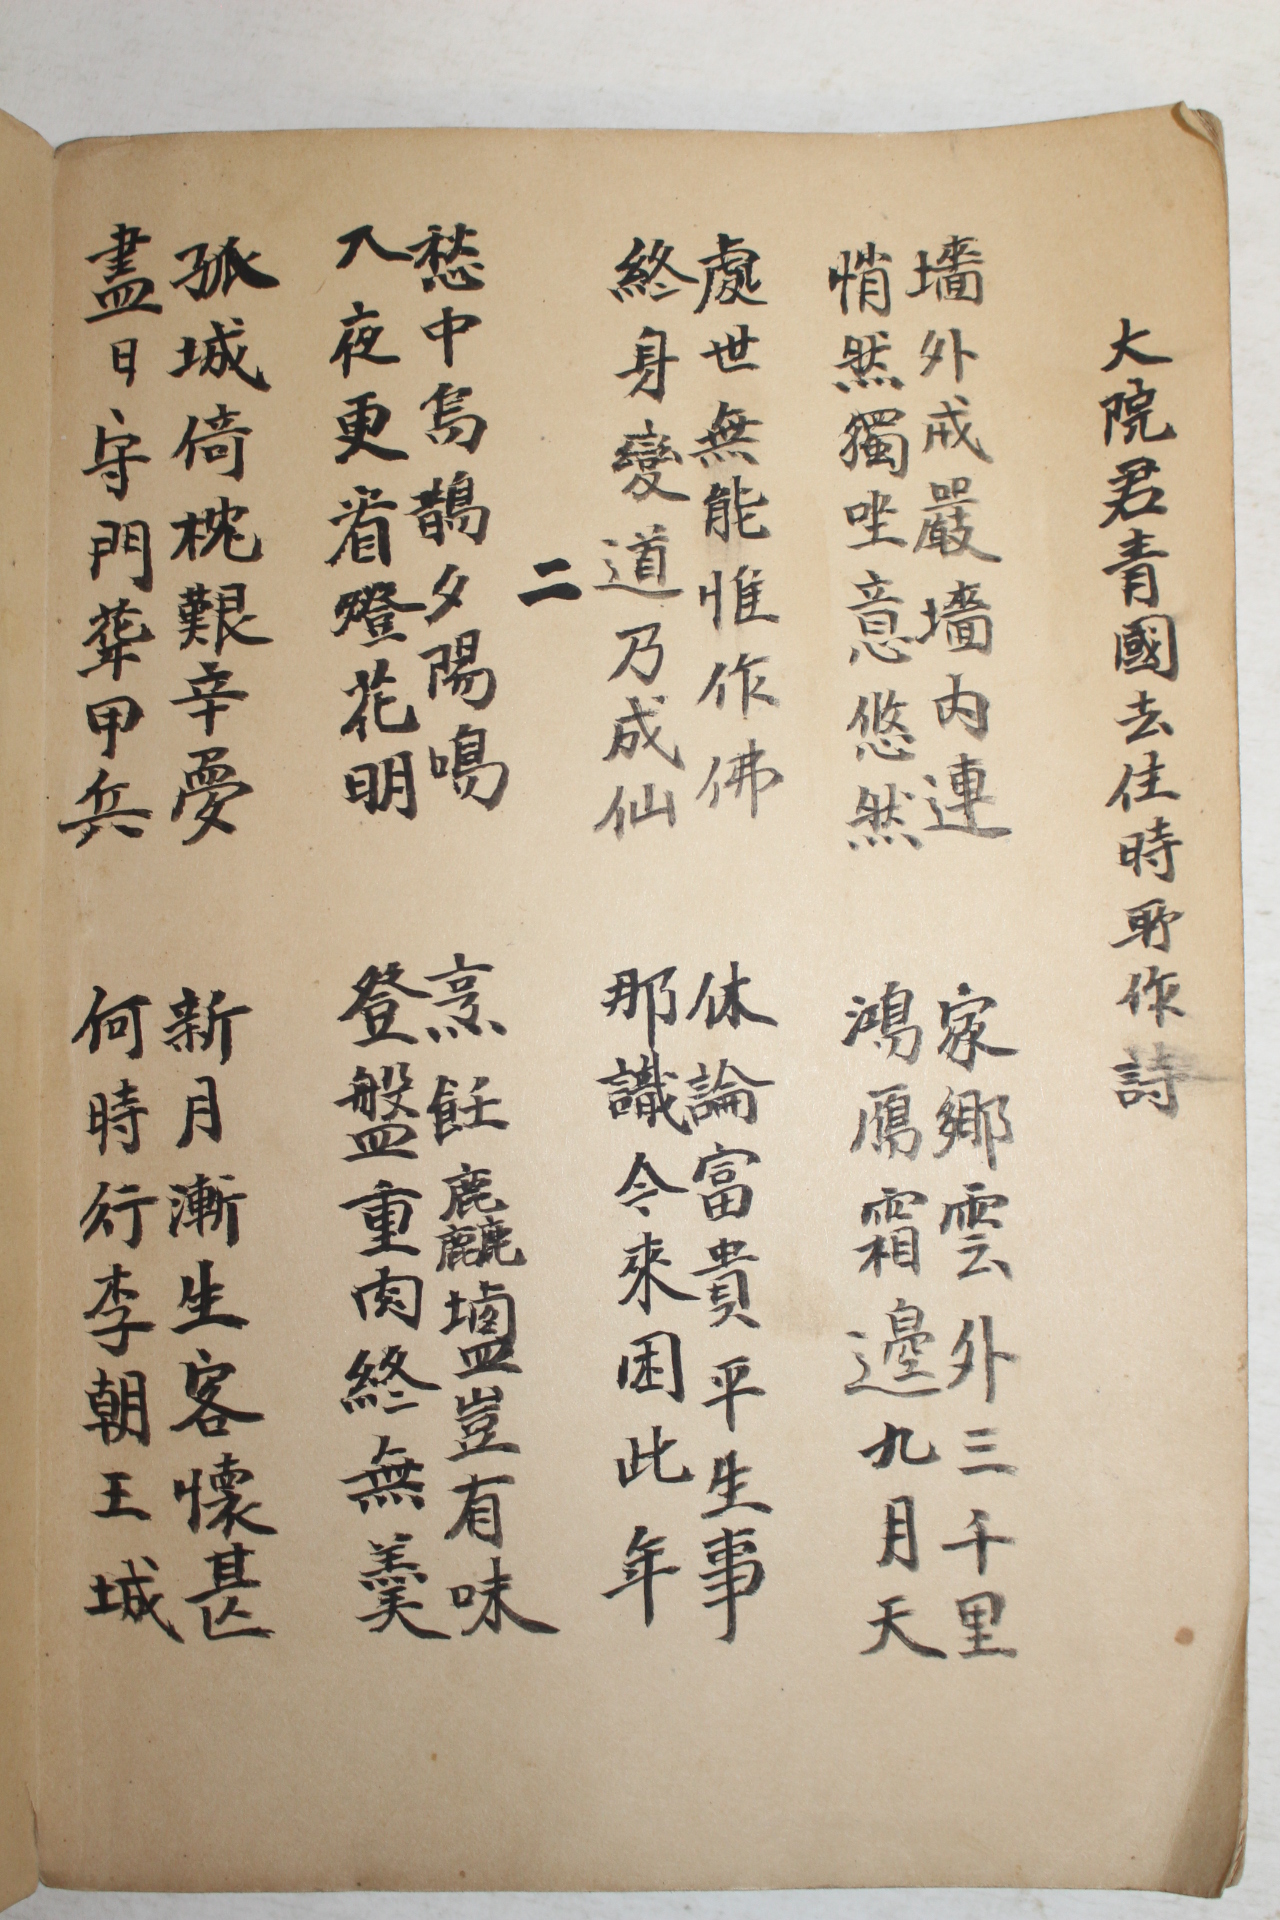 大院君青國去住時所作詩
墻外戒嚴墻內連
悄然獨坐意悠然
家鄉雲外三千里
鴻鴈霜邊九月天
處世無能惟作佛
終身變道乃成仙
休論富貴平生事
那識今來困此年
二
愁中烏鵲夕陽鳴
入夜更看燈花明
烹飪麤鹽豈有味
登盤重肉終無羹
孤城倚枕艱辛夢
盡日守門甲兵
新月漸生客懷甚
何時行李朝王城